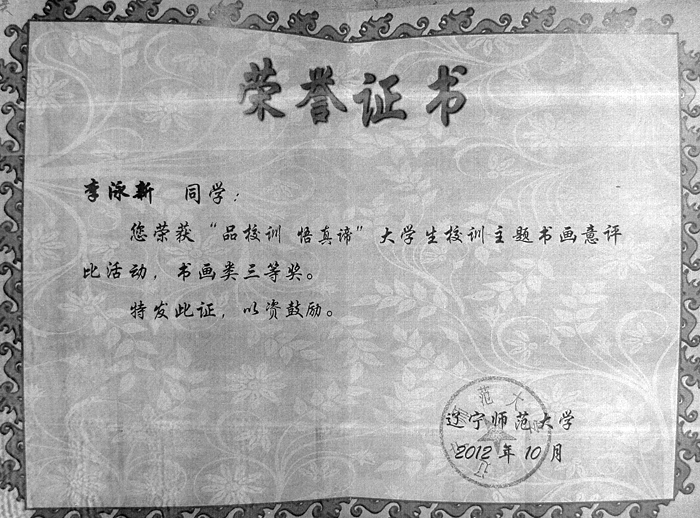 荣誉证书
李泳新 同学：
您荣获“品校训 悟真谛”大学生校训主题书画意评
比活动，书画类三等奖。
特发此证，以资鼓励。
辽宁师范大学
2012 年 10 月